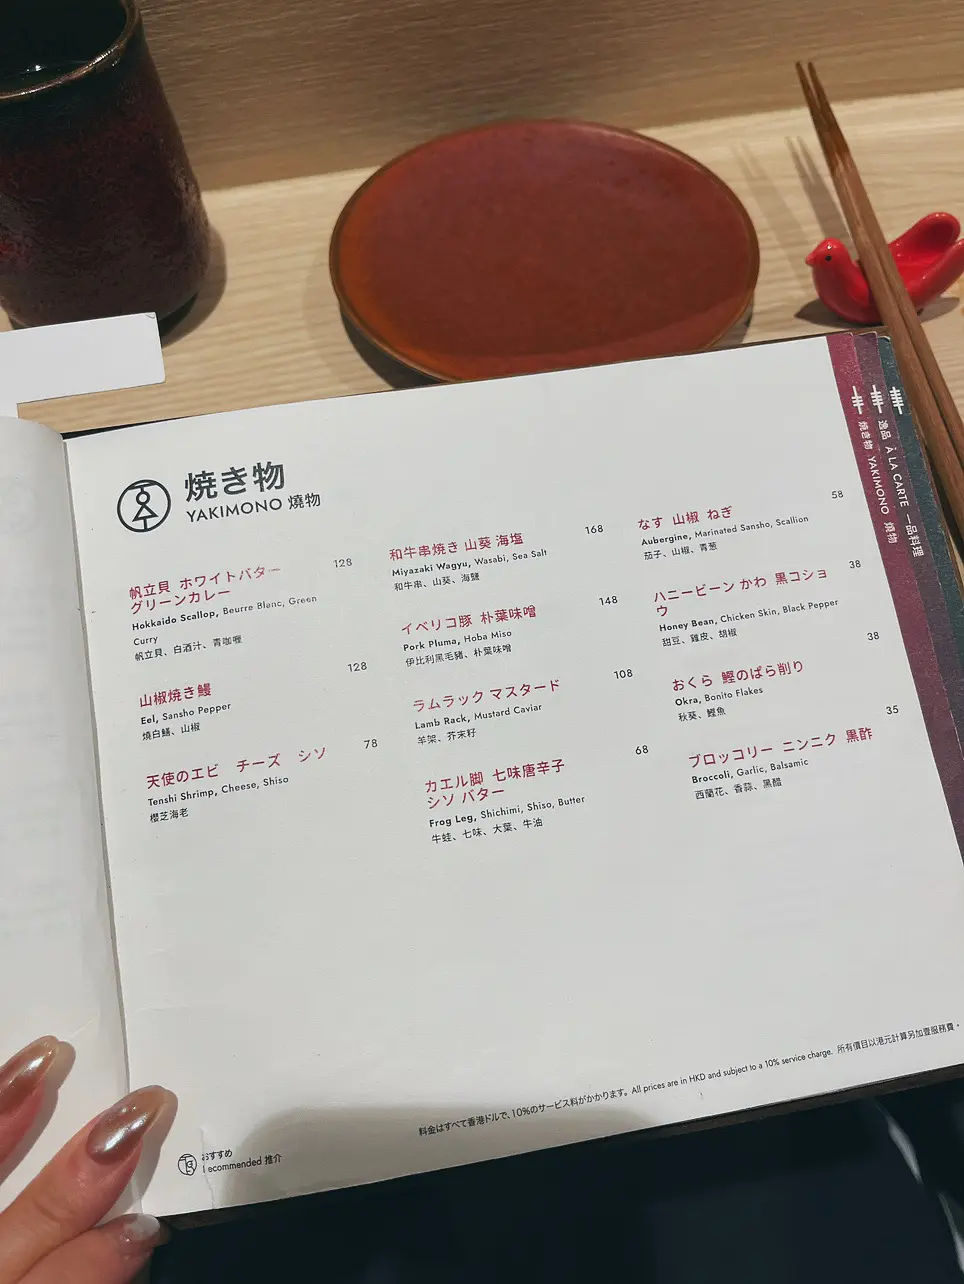 焼き物
YAKIMONO 燒物
帆立貝 ホワイトバター
グリーンカレー
128
Hokkaido Scallop, Beurre Blanc, Green
Curry
帆立貝、白酒汁、青咖喱
山椒焼き鰻
128
Eel, Sansho Pepper
燒白鱔、山椒
天使のエビ チーズ シソ
78
Tenshi Shrimp, Cheese, Shiso
櫻芝海老
和牛串焼き 山葵 海塩
168
Miyazaki Wagyu, Wasabi, Sea Salt
和牛串、山葵、海鹽
イベリコ豚 朴葉味噌
148
Pork Pluma, Hoba Miso
伊比利黑毛豬、朴葉味噌
ラムラック マスタード
108
Lamb Rack, Mustard Caviar
羊架、芥末籽
カエル脚 七味唐辛子
シソ バター
68
Frog Leg, Shichimi, Shiso, Butter
牛蛙、七味、大葉、牛油
なす 山椒 ねぎ
58
Aubergine, Marinated Sansho, Scallion
茄子、山椒、青葱
ハニービーン かわ 黒コショ
ウ
38
Honey Bean, Chicken Skin, Black Pepper
甜豆、雞皮、胡椒
おくら 鰹のばら削り
38
Okra, Bonito Flakes
秋葵、鰹魚
ブロッコリー ニンニク 黒酢
35
Broccoli, Garlic, Balsamic
西蘭花、香蒜、黑醋
焼き物 YAKIMONO 燒物
逸品 À LA CARTE 一品料理
料金はすべて香港ドルで、10%のサービス料がかかります。All prices are in HKD and subject to a 10% service charge. 所有價目以港元計算另加壹服務費。
おすすめ
Recommended 推介